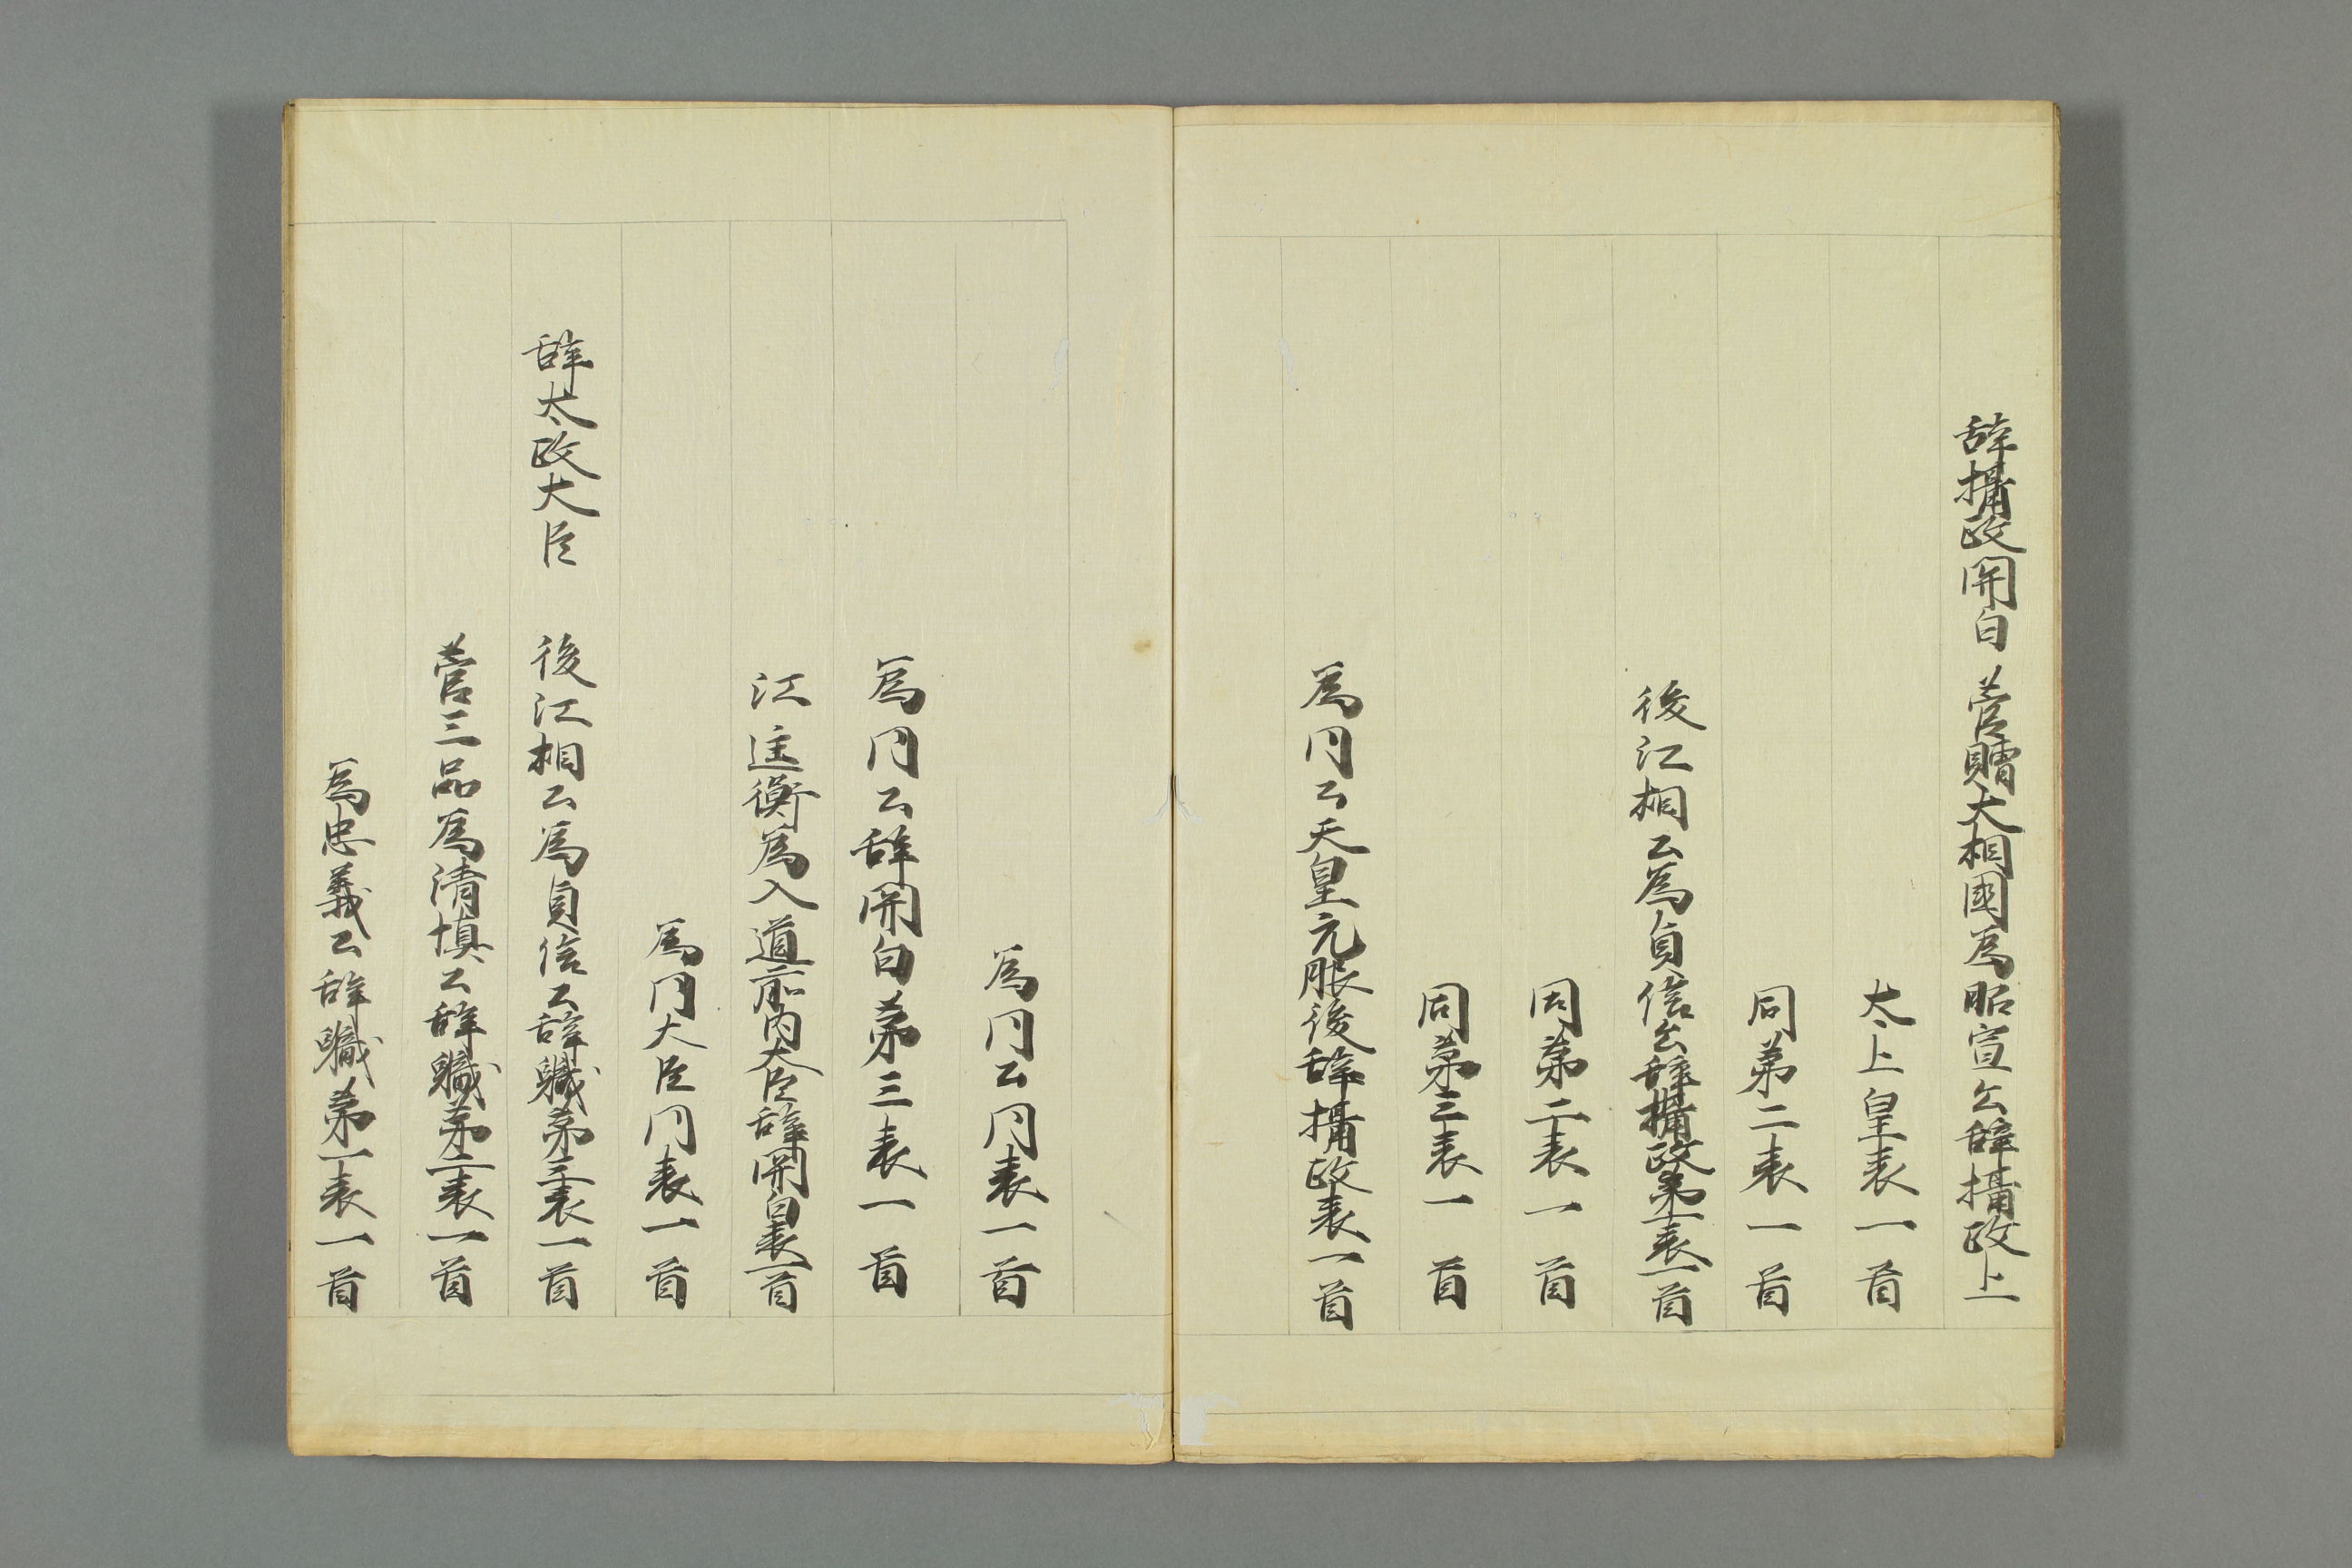 辞攝政関白 菅贈大相國為昭宣公辞攝政上
太上皇表一首
同第二表一首
後江相公為貞信公辞攝政第一表一首
同第二表一首
同第三表一首
為同公天皇元服後辞攝政表一首
為同公同表一首
為同公辞関白第三表一首
江匡衡為入道前内大臣辞関白表一首
為同大臣同表一首
辞太政大臣 後江相公為貞信公辞職第三表一首
菅三品為清慎公辞職第二表一首
為忠義公辞職第一表一首